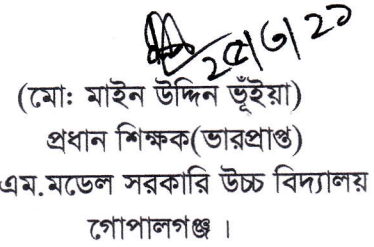 ২৫/৩/২১
(মো: মাইন উদ্দিন ভূঁইয়া)
প্রধান শিক্ষক(ভারপ্রাপ্ত)
এম.মডেল সরকারি উচ্চ বিদ্যালয়
গোপালগঞ্জ ।